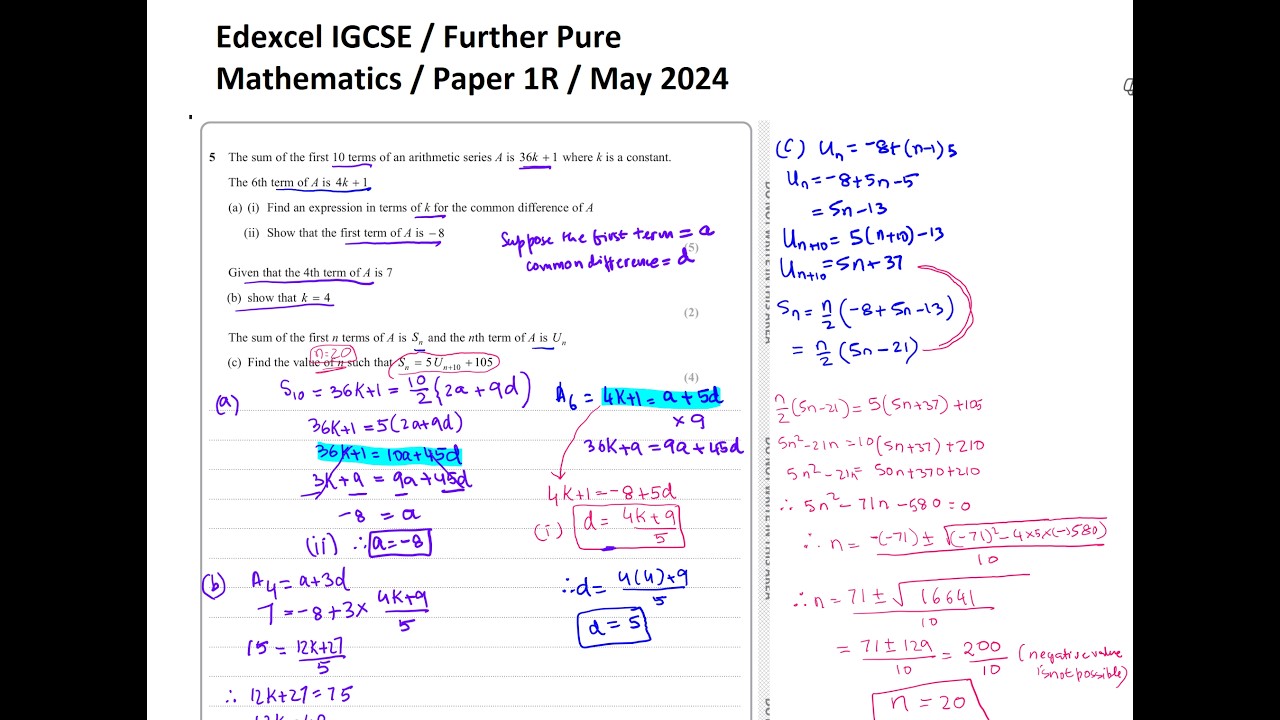 Edexcel IGCSE / Further Pure
Mathematics / Paper 1R / May 2024
5 The sum of the first 10 terms of an arithmetic series A is 36k + 1 where k is a constant.
The 6th term of A is 4k + 1
(a) (i) Find an expression in terms of k for the common difference of A
(ii) Show that the first term of A is −8
(5)
Suppose the first term = a
common difference = d
Given that the 4th term of A is 7
(b) show that k = 4
(2)
The sum of the first n terms of A is Sₙ and the nth term of A is Uₙ
n=20
(c) Find the value of n such that Sₙ = 5Uₙ₊₁₀ + 105
(4)
(a) S₁₀ = 36K+1 = 10/2 {2a + 9d)
36K+1 = 5(2a+9d)
36K+1 = 10a+45d
3K+9 = 9a+45d
-8 = a
(ii) ∴ a=-8
A₆ = 4K+1 = a+5d
×9
36K+9 = 9a+45d
4K+1=-8+5d
(i) d = 4K+9/5
(b) A₄ = a+3d
7 = -8+3× 4K+9/5
15 = 12K+27/5
∴ 12K+27=75
∴d= 4(4)+9/5
d = 5
(c) Uₙ = -8+(n-1)5
Uₙ = -8+5n-5
= 5n-13
Uₙ₊₁₀ = 5(n+10)-13
Uₙ₊₁₀ = 5n+37
Sₙ = n/2 (-8+5n-13)
= n/2 (5n-21)
n/2 (5n-21) = 5(5n+37)+105
5n²-21n = 10(5n+37)+210
5n²-21n = 50n+370+210
∴ 5n²-71n-580=0
∴ n = -(-71) ± √(-71)²-4×5×(-)580)/10
∴ n = 71 ± √16641/10
= 71±129/10 = 200/10 (negative value is not possible)
n = 20